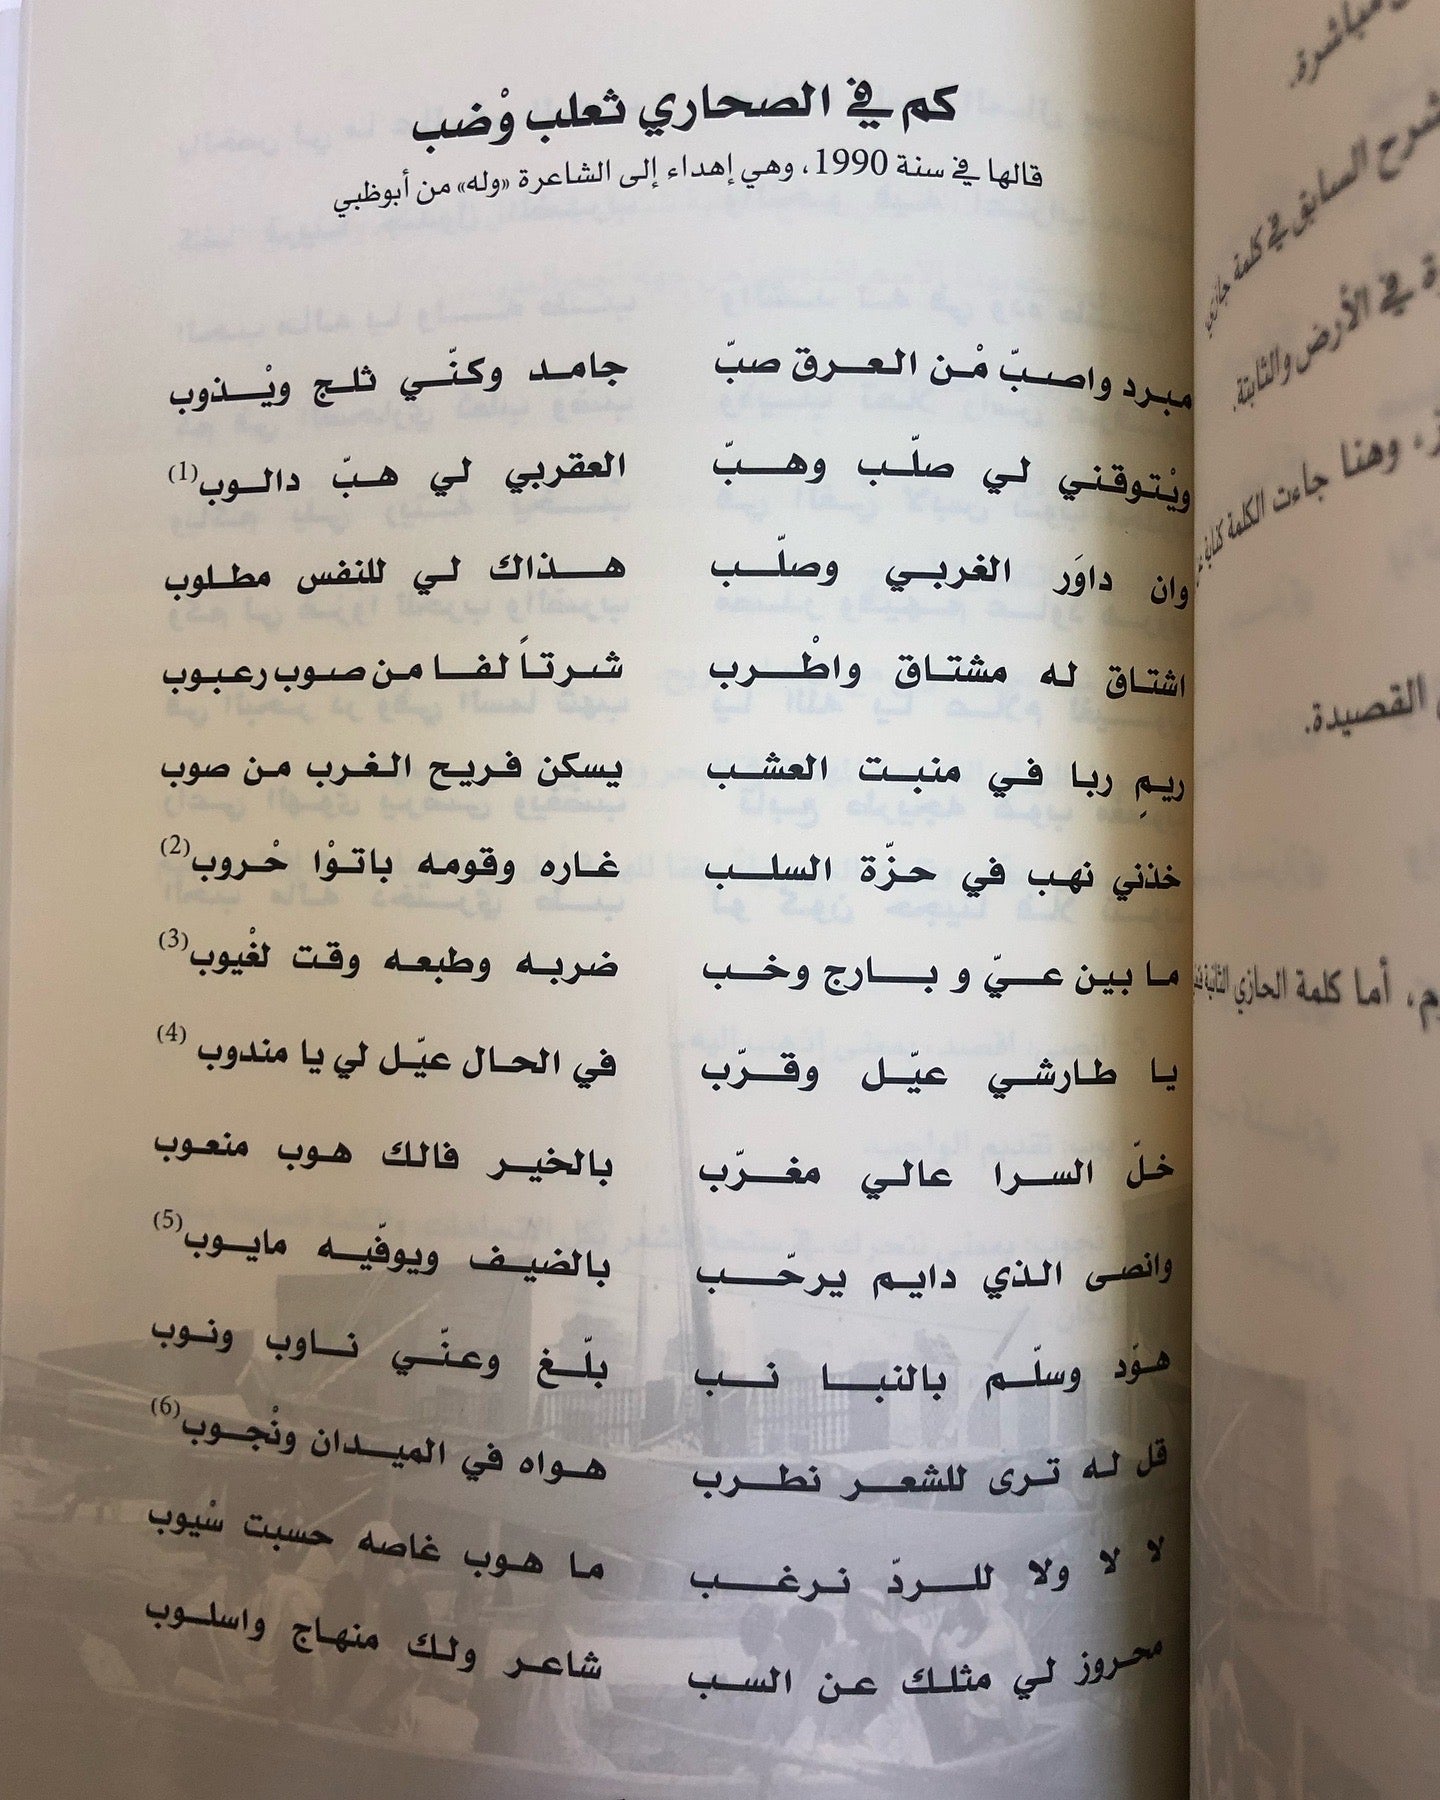 كم في الصحاري ثعلب وْضب
قالها في سنة 1990، وهي إهداء إلى الشاعرة «وله» من أبوظبي
مبرد واصبّ مْن العرق صبّ جامد وكنّي ثلج ويْذوب
ويْتوقني لي صلّب وهبّ العقربي لي هبّ دالوب(1)
وان داوَر الغربي وصلّب هذاك لي للنفس مطلوب
اشتاق له مشتاق واطْرب شرتاً لفا من صوب رعبوب
ريمِ ربا في منبت العشب يسكن فريح الغرب من صوب
خذني نهب في حزّة السلب غاره وقومه باتوْا حْروب(2)
ما بين عيّ و بارج وخب ضربه وطبعه وقت لغْيوب(3)
يا طارشي عيّل وقرّب في الحال عيّل لي يا مندوب(4)
خلّ السرا عالي مغرّب بالخير فالك هوب منعوب
وانصى الذي دايم يرحّب بالضيف ويوفّيه مايوب(5)
هوّد وسلّم بالنبا نب بلّغ وعنّي ناوب ونوب
قل له ترى للشعر نطرب هواه في الميدان ونْجوب(6)
لا لا ولا للردّ نرغب ما هوب غاصه حسبت سْيوب
محروز لي مثلك عن السب شاعر ولك منهاج واسلوب
مباشرة.
شرح السابق في كلمة
في الأرض والثابتة.
، وهنا جاءت الكلمة كناية
القصيدة.
، أما كلمة الحازي الثانية